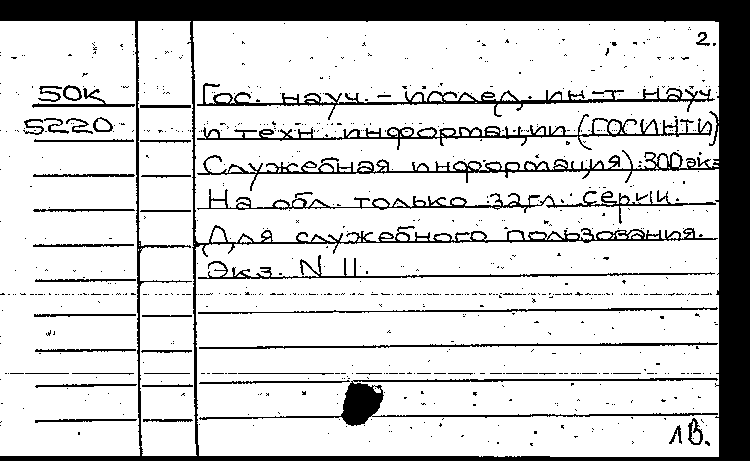 2.
50К Гос. науч.-исслед. ин-т науч.
5220 и техн. информации (ГОСИНТИ)
Служебная информация). 300 экз
На обл. только загл. серии.
Для служебного пользования.
Экз. N 11.
1В.